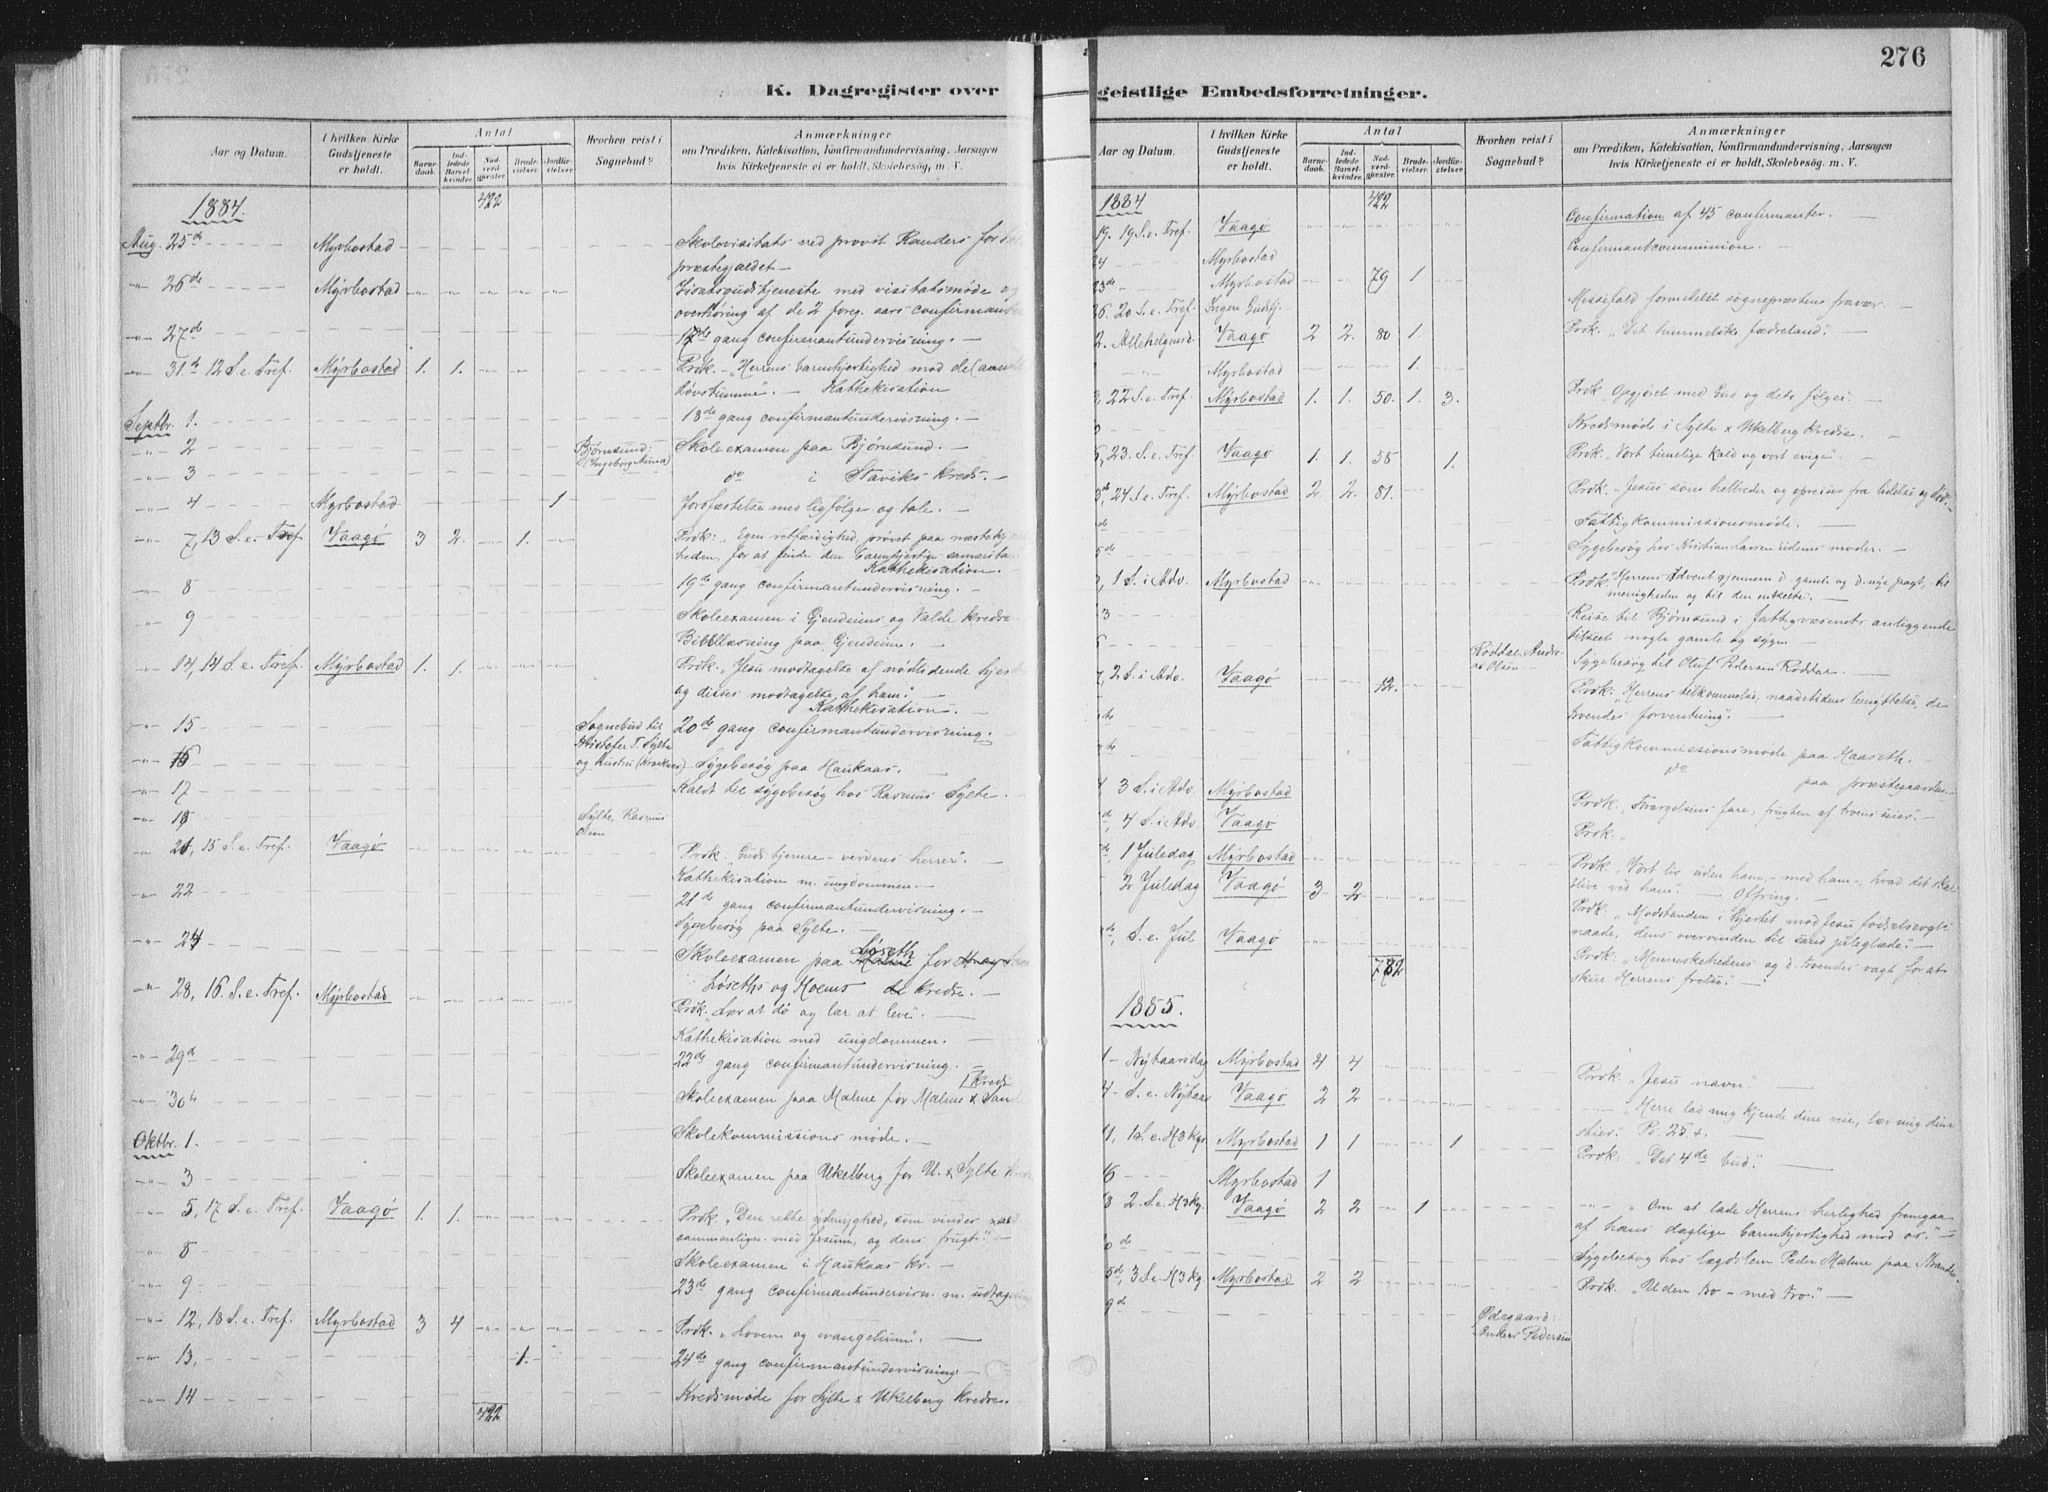 276
K. Dagregister over
geistlige Embedsforretninger.
Aar og Datum.
I hvilken Kirke Gudstjeneste er holdt.
Antal
Barne-daab.
Ind-ledede Barsel-kvinder.
Nad-verd-gjæster.
Brude-vielser.
Jordfæ-stelser
Hvorhen reist i Sognebud?
Anmærkninger
om Prædiken, Katekisation, Konfirmandundervisning, Aarsagen
hvis Kirketjeneste ei er holdt, Skolebesøg, m. V.
1884. 422
Aug. 25de Myrbostad Skolevisitats ved provst Kanders for
præstegjældet —
26de Myrbostad visitatsmøde og
overhøring af de 2 foreg. aars confirmanter
27de 17de gang confirmantundervisning. —
31te 12 S. e. Tref. Myrbostad 1. 1. Prdk. „Herrens barmhjertighed mod
døvstumme". — Kathekisation
Septbr. 1. 18de gang confirmantundervisning. —
2 Bjørnsund: Skoleexamen paa Bjørnsund. —
3 do i Staviks kreds. —
4 Myrbostad 1 Jordfæstelse med ligfølge og tale. —
7, 13 S. e. Tref Vaagø 3 2. 1. Prdk: „Egen retfærdighed, prøvet paa
heden, for at finde den barmhjertige samaritan
Kathekisation. —
8 19de gang confirmantundervisning. —
9 Skoleexamen i Gjendems og Valde kredse
Bibellæsning paa Gjendem. —
14, 14 S. e. Tref. Myrbostad 1. 1. Prdk: „Jesu modtagelse af nødlidende
og disses modtagelse af ham." —
Kathekisation. —
15 Sognebud til 20de gang confirmantundervisning.
Kristofer T. Sylte
16 og Hustru Sygebesøg paa Haukaas. —
17 Kaldt til sygebesøg hos Rasmus Sylte. —
18 Sylte, Rasmus
Olsen
21, 15 S. e. Tref. Vaagø Prdk: „Guds tjenere – verdens herrer". —
Kathekisation m. ungdommen. —
22 21de gang confirmantundervisning. —
Sygebesøg paa Sylte. —
24 Skoleexamen paa Løseth for
Løseths og Moens kredse. —
28, 16. S. e. Tref. Myrbostad Prdk: „Lær at dø og lær at leve". —
Kathekisation med ungdommen. —
29d 22de gang confirmantundervisning. —
30te Skoleexamen paa Malme for Malme &
Oktbr. 1. Skolekommissions møde. —
3 Skoleexamen paa Ukelberg for U. & Sylte
5, 17 S. e. Tref. Vaagø 1. 1. Prdk: „Den rette ydmyghed, som vindes
med Jesum, og dens frugt." —
8 Skoleexamen i Haukaas kr. —
9 23de gang confirmantundervisn. m.
12, 18 S. e. Tref. Myrbostad 3 4 Prdk. „Loven og evangelium". —
13, 1. 24de gang confirmantundervisning —
14 Kredsmøde for Sylte & Ukelberg kredse.
422
Aar og Datum.
I hvilken Kirke Gudstjeneste er holdt.
Antal
Barne-daab.
Ind-ledede Barsel-kvinder.
Nad-verd-gjæster.
Brude-vielser.
Jordfæ-stelser.
Hvorhen reist i Sognebud?
Anmærkninger
om Prædiken, Katekisation, Konfirmandundervisning, Aarsagen
hvis Kirketjeneste ei er holdt, Skolebesøg, m. V.
1884 422
19. 19 S. e. Tref. Vaagø Confirmation af 45 confirmanter. —
24 Myrbostad Confirmantcommunion. —
23de Myrbostad 79 1.
26. 20 S. e. Tref. Ingen Gudstj. Messefald formedelst sognepræstens fravær —
2. Allehelgensd. Vaagø 2 2. 80 1. Prdk. „Det himmelske fædreland". —
Myrbostad 1.
22 S. e. Tref. Myrbostad 1. 1. 50. 1. 3. Prdk. Opgjøret med Gud og dets følger: —
Kredsmøde i Sylte & Ukelberg kredse. —
23. S. e. Tref. Vaagø 1. 1. 58 1. Prdk: „Vort timelige kald og vort evige". —
24 S. e. Tref. Myrbostad 2. 2. 81. Prdk. „Jesus som helbreder og opreiser fra lidelse og
Fattigkommissionsmøde. —
Sygebesøg hos Kristian moder. —
1 S. i Adv. Myrbostad Prdk: „Herrens Advent gjennem d. gamle og d. nye pagt, til
menigheden og til den enkelte. —
3 Reise til Bjørnsund i fattigvæsenets anliggende
tilseet nogle gamle og syge. —
Røddal, Andre-
as Olsen — Sygebesøg til Oluf Pedersen Røddal —
7, 2 S. i Adv. Vaagø 12. Prdk: „Herrens tilkommelse, naadetidens benyttelse, de
troendes forventning". —
Fattigkommissionsmøde paa Haaseth. —
do paa præstegaarden. —
3 S. i Adv. Myrbostad Prdk. Forargelsens fare, frugten af troens seier. —
4 S. i Adv. Vaagø Prdk. „
1 Juledag Myrbostad Prdk. „Vort liv uden ham, – med ham –, hvad det skal
blive ved ham". — Offring. —
2 Juledag Vaagø 3 2 Prdk: „Modstanden i hjertet mod Jesu fødsels
naade, dens overvinden til sand juleglæde". —
S. e. Jul Vaagø Prdk: „Menneskehedens og d. troendes vagt for at
skue Herrens frelse". —
782
1885.
1 – Nytaarsdag Myrbostad 4 4 Prdk: „Jesu navn". —
4 – S. e. Nytaar Vaagø 2 2 „Herre lad mig kjende dine veie, lær mig dine
stier: Ps. 25.4. —
11, 1 S. e. H3kgr Myrbostad 1 1 1 Prdk: „Det 4de bud". —
16 Myrbostad 1
18 2. S. e. H3kg. Vaagø 2 2 1 „Om at lade Herrens herlighed fremgaa
af hans daglige barmhjertighed mod os." —
Sygebesøg hos lægdslem Peder Malme paa
3 S. e. H3kg. Myrbostad 2 2 Prdk. „Uden tro – med tro." —
Ødegaard:
Anders Pedersen